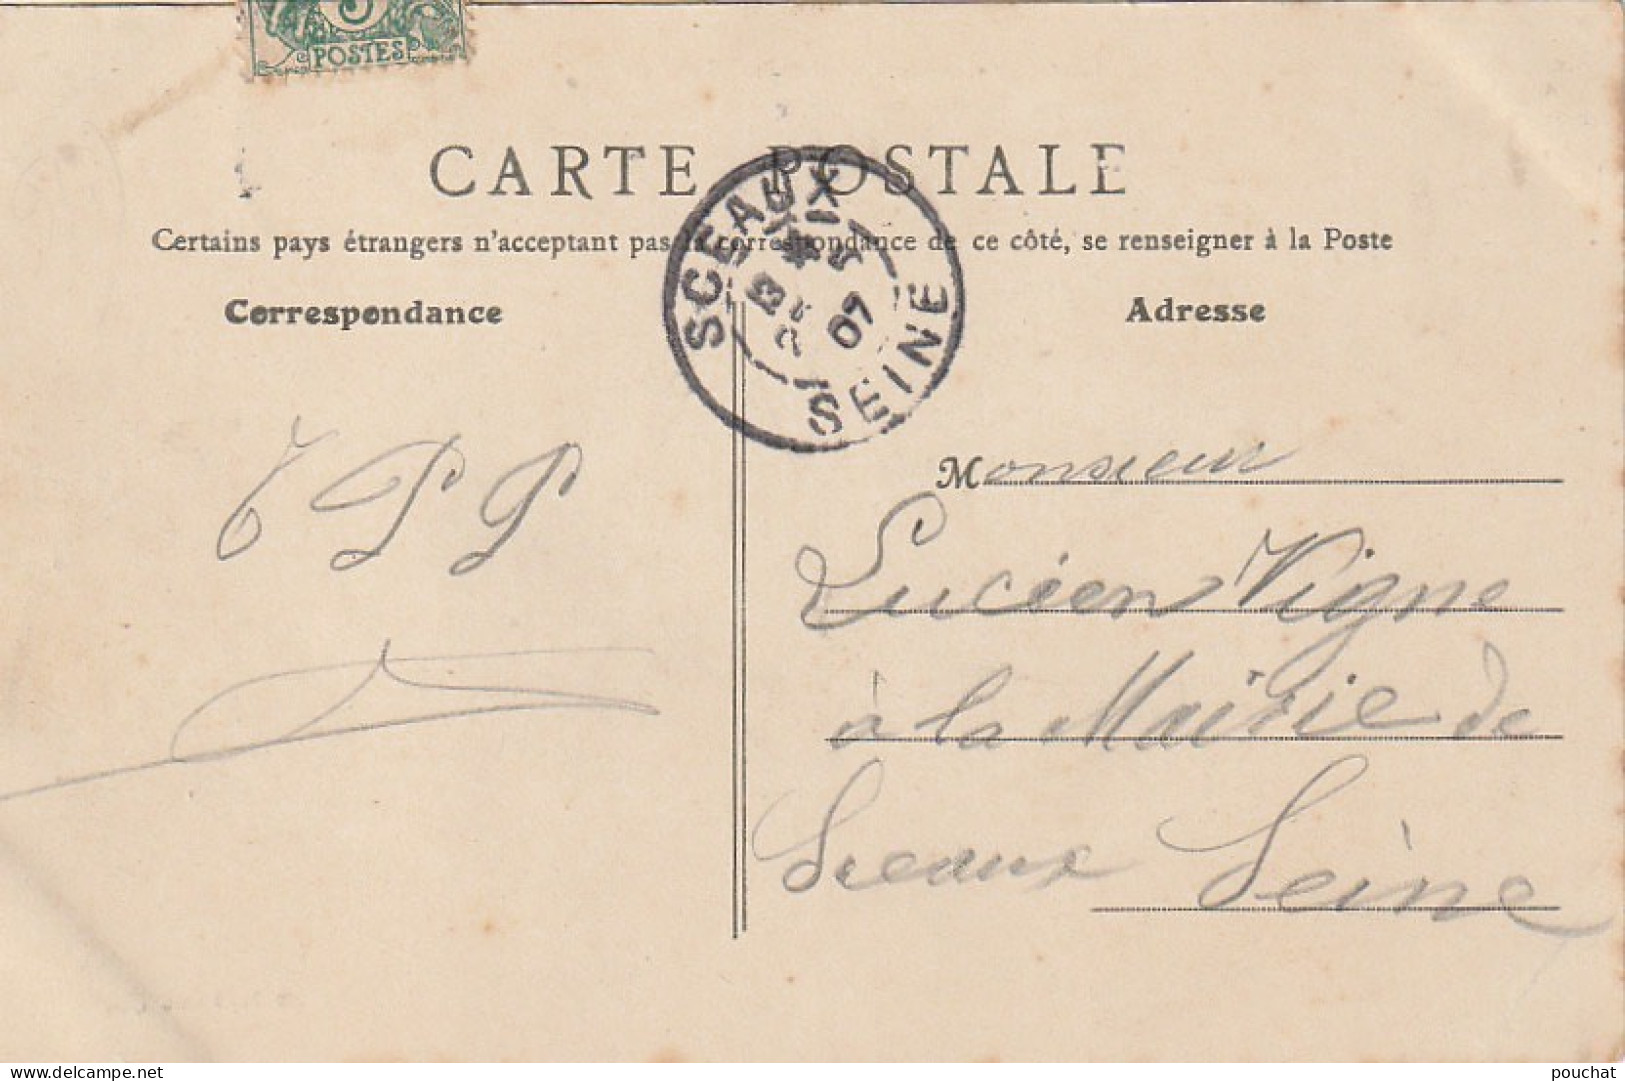 5
POSTES
CARTE POSTALE
Certains pays étrangers n'acceptant pas la correspondance de ce côté, se renseigner à la Poste
Correspondance
Adresse
SCEAUX
07
SEINE
Monsieur
Lucien Vigne
à la Mairie de
Sceaux Seine
pouchat